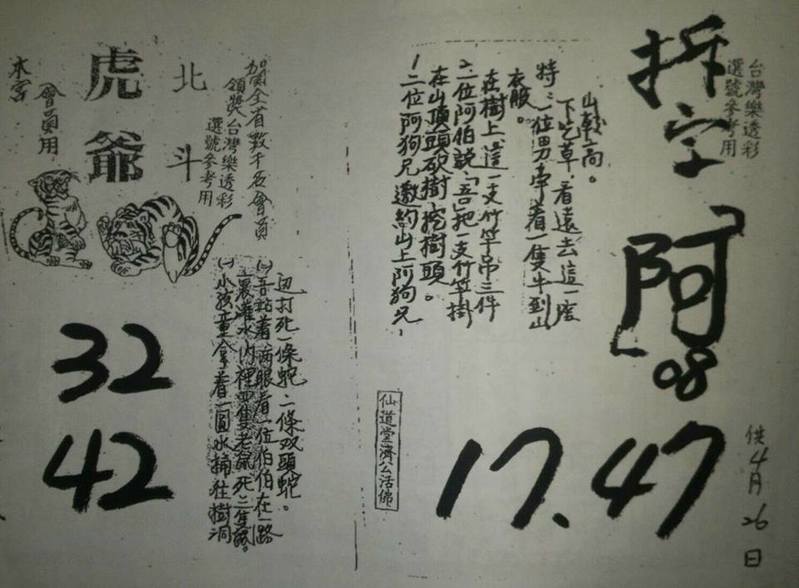 台灣樂透彩
選號參考用
拆字
阿
08
17.47
供4月26日
1二位阿狗兄邀約山上阿狗兄,
在山頂頭砍樹挖樹頭。
2二位阿伯說「吾」把一支竹竿掛
在樹上,這一支竹竿吊三件
衣服。
特:一位男牽着一隻牛到山
下吃草,看遠去這一座
山較高。
仙道堂濟公活佛
賀全省數千名會員
領獎台灣樂透彩
選號參考用
北斗
虎爺
會員用
本宮
(一)小孩童拿着一圓水桶往樹洞
裡灌水內裡四隻老鼠死二隻
(二)吾站着兩眼看一位伯伯在一路
邊打死一條蛇,二條双頭蛇。
32
42